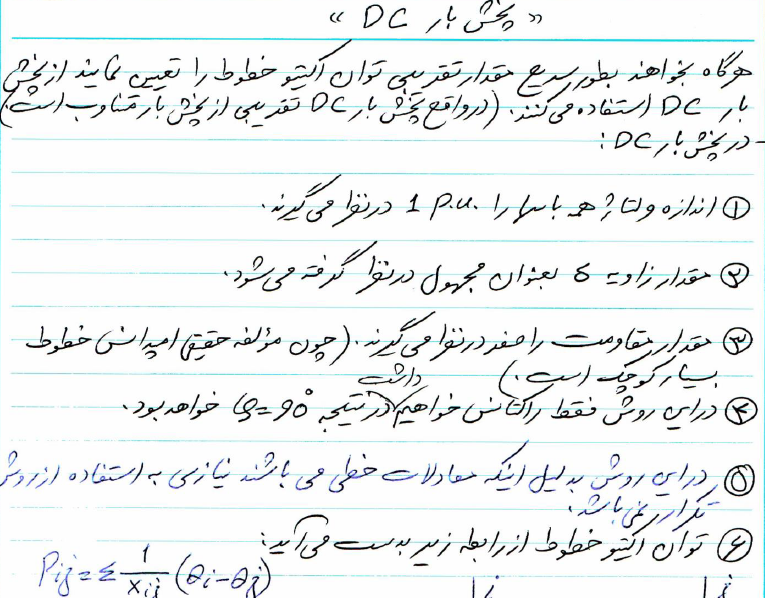 « پخش بار DC »
هرگاه بخواهند بطور سریع مقدار تقریبی توان اکتیو خطوط را تعیین نمایند از پخش
بار DC استفاده می‌کنند. (در واقع پخش بار DC تقریبی از پخش بار متناوب است)
- در پخش بار DC:
① اندازه ولتاژ همه باسها را 1 P.U. در نظر می‌گیرند.
② مقدار زاویه δ بعنوان مجهول در نظر گرفته می‌شود.
③ مقدار مقاومت را صفر در نظر می‌گیرند. (چون مؤلفه حقیقی امپدانس خطوط
بسیار کوچک است.)
④ در این روش فقط راکتانس خواهیم داشت در نتیجه θ=90° خواهد بود.
⑤ در این روش بدلیل اینکه معادلات خطی می باشند نیازی به استفاده از روش
تکرار نمی باشد.
⑥ توان اکتیو خطوط از رابطه زیر بدست می‌آید:
Pij = Σ 1/xij (θi-θj)